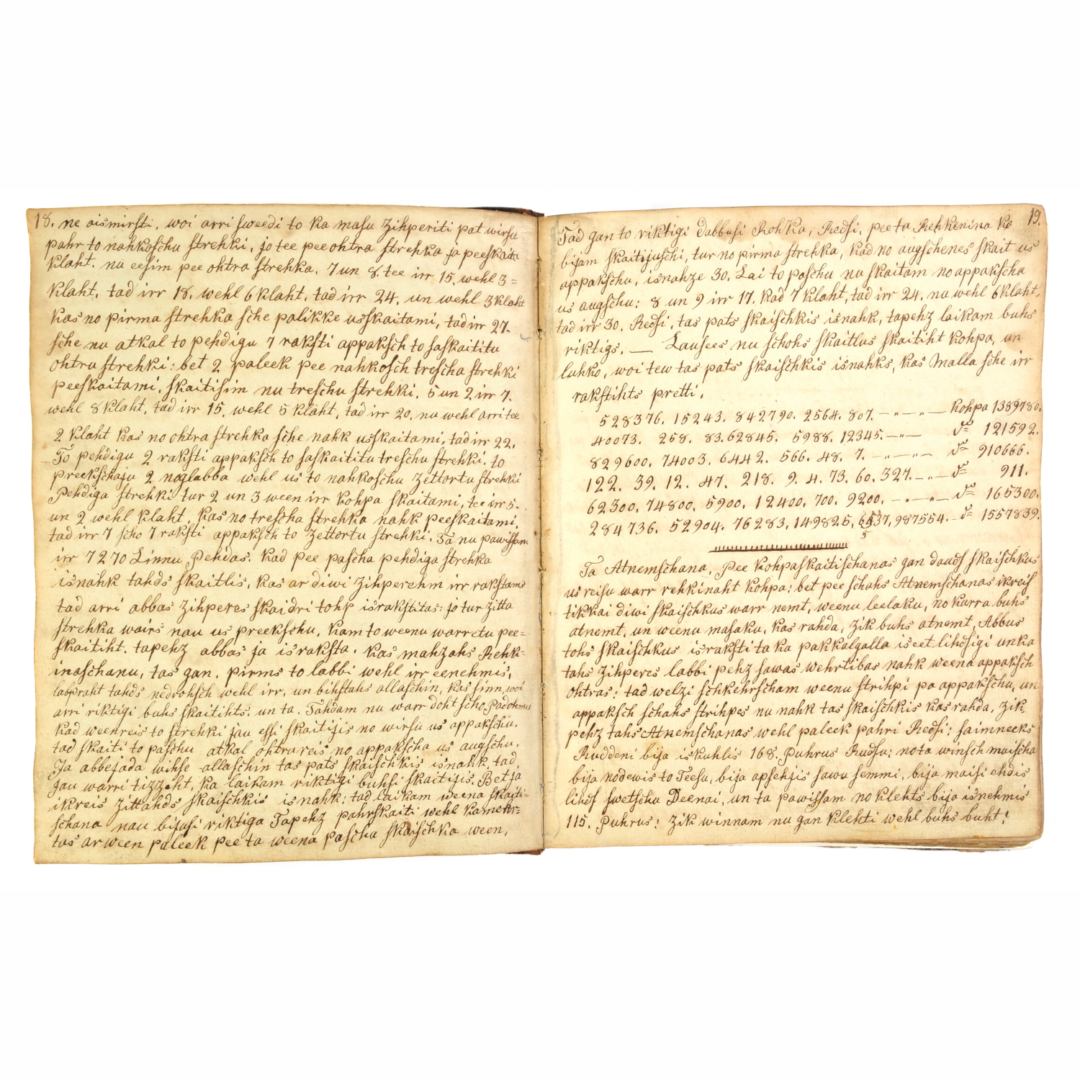 18. ne aismirsti, woi arri sweedi to ka masu Zihperiti pat wirsu
pahr to nahkoschu strehki, jo tee pee ohtra strehka ja peeskaita
klaht. nu eesim pee ohtra strehka. 7 un 8 tee irr 15, wehl 3=
klaht, tad irr 18, wehl 6 klaht, tad irr 24, un wehl 3 klaht
kas no pirma strehka sche palikke usskaitami, tad irr 27.
sche nu atkal to pehdigu 7 raksti appaksch to saskaititu
ohtru strehki: bet 2 paleek pee nahkosch trescha strehki
peeskaitami. skaitisim nu treschu strehki. 5 un 2 irr 7.
wehl 8 klaht, tad irr 15, wehl 5 klaht, tad irr 20, nu wehl arri tee
2 klaht kas no ohtra strehka sche nahk usskaitami, tad irr 22.
To pehdigu 2 raksti appaksch to saskaititu treschu strehki, to
preekschaju 2 noglabba wehl us to nahkoschu Zettortu strehki
Pehdiga strehki tur 2 un 3 ween irr kohpa skaitami, tee irr 5.
un 2 wehl klaht, kas no trescha strehka nahk peeskaitami,
tad irr 7 scho 7 raksti appaksch to Zettortu strehki. Ta nu pawissam
irr 7270 Linnu Pehdas. Kad pee pascha pehdiga strehka
isnahk tahds skaitlis, kas ar diwi Zihperehm irr rakstams
tad arri abbas Zihperes skaidri tohp israkstitas: jo tur zitta
strehka wairs nau us preekschu, kam to weenu warretu pee=
skaitiht. tapehz abbas ja israksta. Kas mahzahs Rehk-
inaschanu, tas gan, pirms to labbi wehl irr eenehmis,
labpraht tahds nedrohsch wehl irr, un bihstahs allaschin, kas sinn, woi
arri riktigi buhs skaitihts, un ta. Tahdam nu warr doht scho Padohmu
Kad weenreis to strehki jau essi skaitijis no wirsu us appakschu.
tad skaiti to paschu atkal ohtrareis no appakscha us augschu.
Ja abbejada wihse allaschin tas pats skaischkis isnahk, tad
jau warri tizzeht, ka laikam riktigi buhsi skaitijis. Bet ja
ikreis zittahds skaischkis isnahk: tad laikam weena skaiti-
schana nau bijusi riktiga Tapehz pahrskaiti wehl kamehr-
tas ar ween paleek pee ta weena paschu skaischka ween,
19.
Tad gan to riktigi dabbusi Rohka, Redsi, pee ta Rehkenina ko
bijam skaitijuschi, tur no pirma strehka, kad no augschenes skait us
appakschu, isnahze 30. Lai to paschu nu skaitam no appakscha
us augschu: 8 un 9 irr 17. Kad 7 klaht, tad irr 24. nu wehl 6 klaht,
tad irr 30. Redsi, tas pats skaischkis isnahk, tapehz laikam buhs
riktigs. — Lausees nu schohs skaitlus skaitiht kohpa, un
luhko, woi tew tas pats skaischkis isnahks, kas Malla sche irr
rakstihts pretti.
528376. 15243. 842790. 2564. 807. — " — Kohpa 1389780.
40073. 268. 83.62845. 5988. 12345. — " — do 121592.
829600. 74003. 6442. 566. 48. 7. — " — do 910666.
122. 39. 12. 47. 218. 9. 4. 73. 60. 327. — " — do 911.
62300. 74800. 5900. 12400. 700. 9200. — " — do 165300.
284736. 52904. 76283. 149825. 6537. 987554. — do 1557839.
Ta Atnemschana. Pee Kohpaskaitischanas gan daudz skaischkus
us reisu warr rehkinaht kohpa: bet pee schahs Atnemschanas ikreis
tikkai diwi skaischkus warr nemt, weenu leelaku, no kurra buhs
atnemt, un weenu masaku, kas rahda, zik buhs atnemt. Abbus
tohs skaischkus israksti ta ka pakkalgalla is eet lihdsigi un ka
tahs Zihperes labbi pehz sawas wehrtibas nahk weena appaksch
ohtras: tad welzi schkehrscham weenu strihpi pa appakschu, un
appaksch schahs strihpes nu nahk tas skaischkis kas rahda, zik
pehz tahs Atnemschanas wehl paleek pahri Redsi: saimneeks
Ruddeni bija iskuhlis 168. Puhrus Rudsu: no ta winsch maischa
bija nodewis to Teesu, bija apsehjis sawu semmi, bija maisi ehdis
lihds swetschu Deenai, un ta pawissam no klehts bija isnehmis
115. Puhrus: Zik winnam nu gan klehti wehl buhs buht!